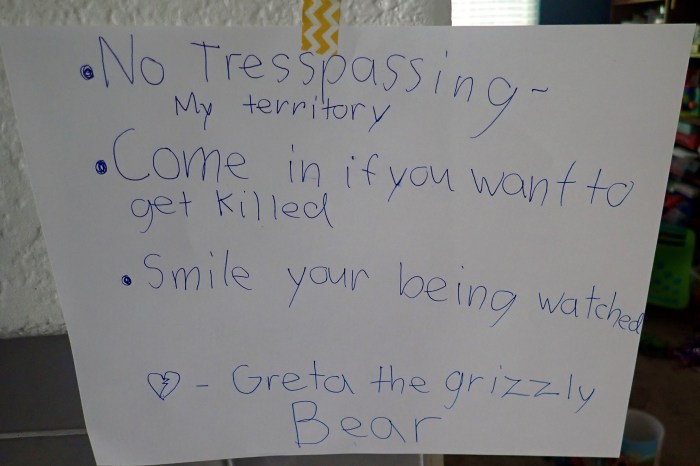 • No Tresspassing-
My territory
• Come in if you want to
get killed
• Smile your being watched
💔 - Greta the grizzly
Bear